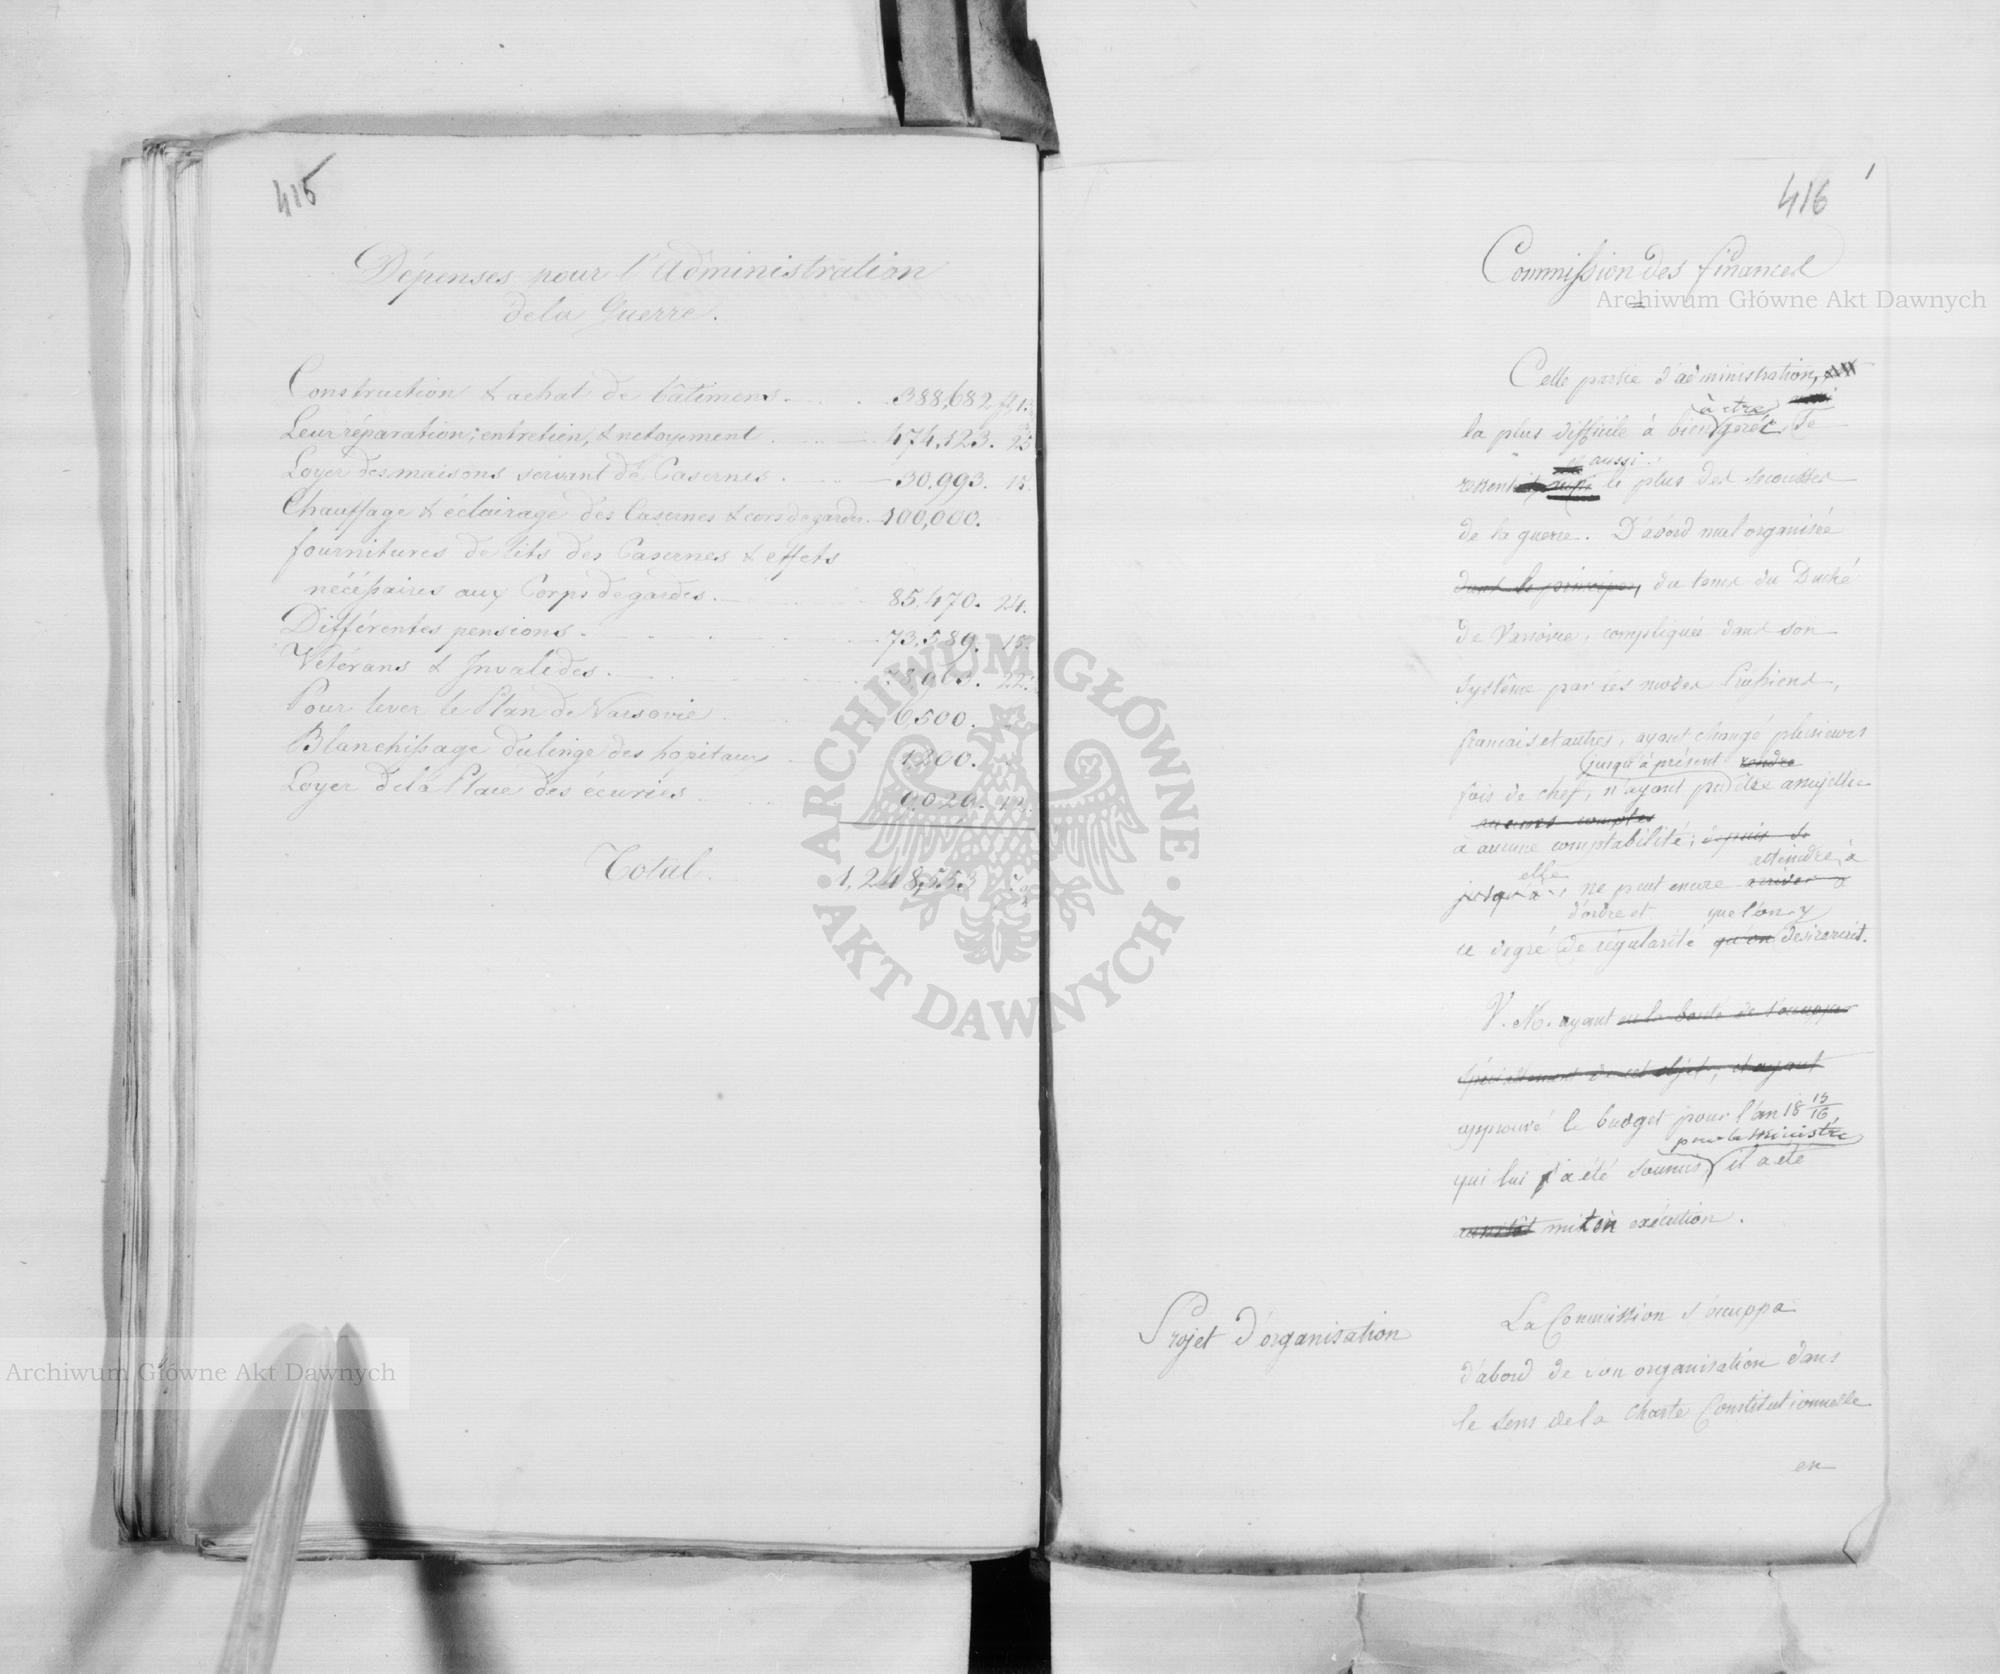 415
Dépenses pour l'Administration
de la Guerre.
Construction & achat de bâtimens. 388,682 fl 1.
Leur réparation, entretien, & netoyement 474,123. 25
Loyer des maisons servant de Casernes. 30,993. 15.
Chauffage & éclairage des Casernes & cors de gardes. 100,000.
fournitures de lits des Casernes & effets
nécéssaires aux Corps de gardes. 85,470. 24.
Différentes pensions. 73,589. 15.
Vétérans & Invalides. 22.
Pour lever le Plan de Varsovie 6500.
Blanchissage du linge des hopitaux 1200.
Loyer de la Place des écuries
Total. 1,248,553
416
1
Commission des finances
Cette partie d'administration,
à être
la plus difficile à bien gérér, se
aussi
ressent le plus des secousses
de la guerre. D'abord mal organisée
dans le principe, du tems du Duché
de Varsovie, compliquée dans son
système par les modes Prussiens,
francais et autres, ayant changé plusieurs
jusqu'à présent rendre
fois de chef, n'ayant pu être assujettie
aucuns comptes
à aucune comptabilité; depuis
atteindre à
elle
jusqu'à ne peut encore arriver à
d'ordre et que l'on y
ce degré de régularité qu'on désireroit.
V. M. ayant eu la bonté de s'occuper
spécialement de cet objet, et ayant
approuvé le budget pour l'an 18 15/16,
par le ministre
qui lui a été soumis, il a été
aussitôt mis en exécution.
Projet d'organisation
La Commission s'occuppa
d'abord de son organisation dans
le sens de la Charte Constitutionnelle
en
Archiwum Główne Akt Dawnych
Archiwum Główne Akt Dawnych
ARCHIWUM GŁÓWNE
AKT DAWNYCH